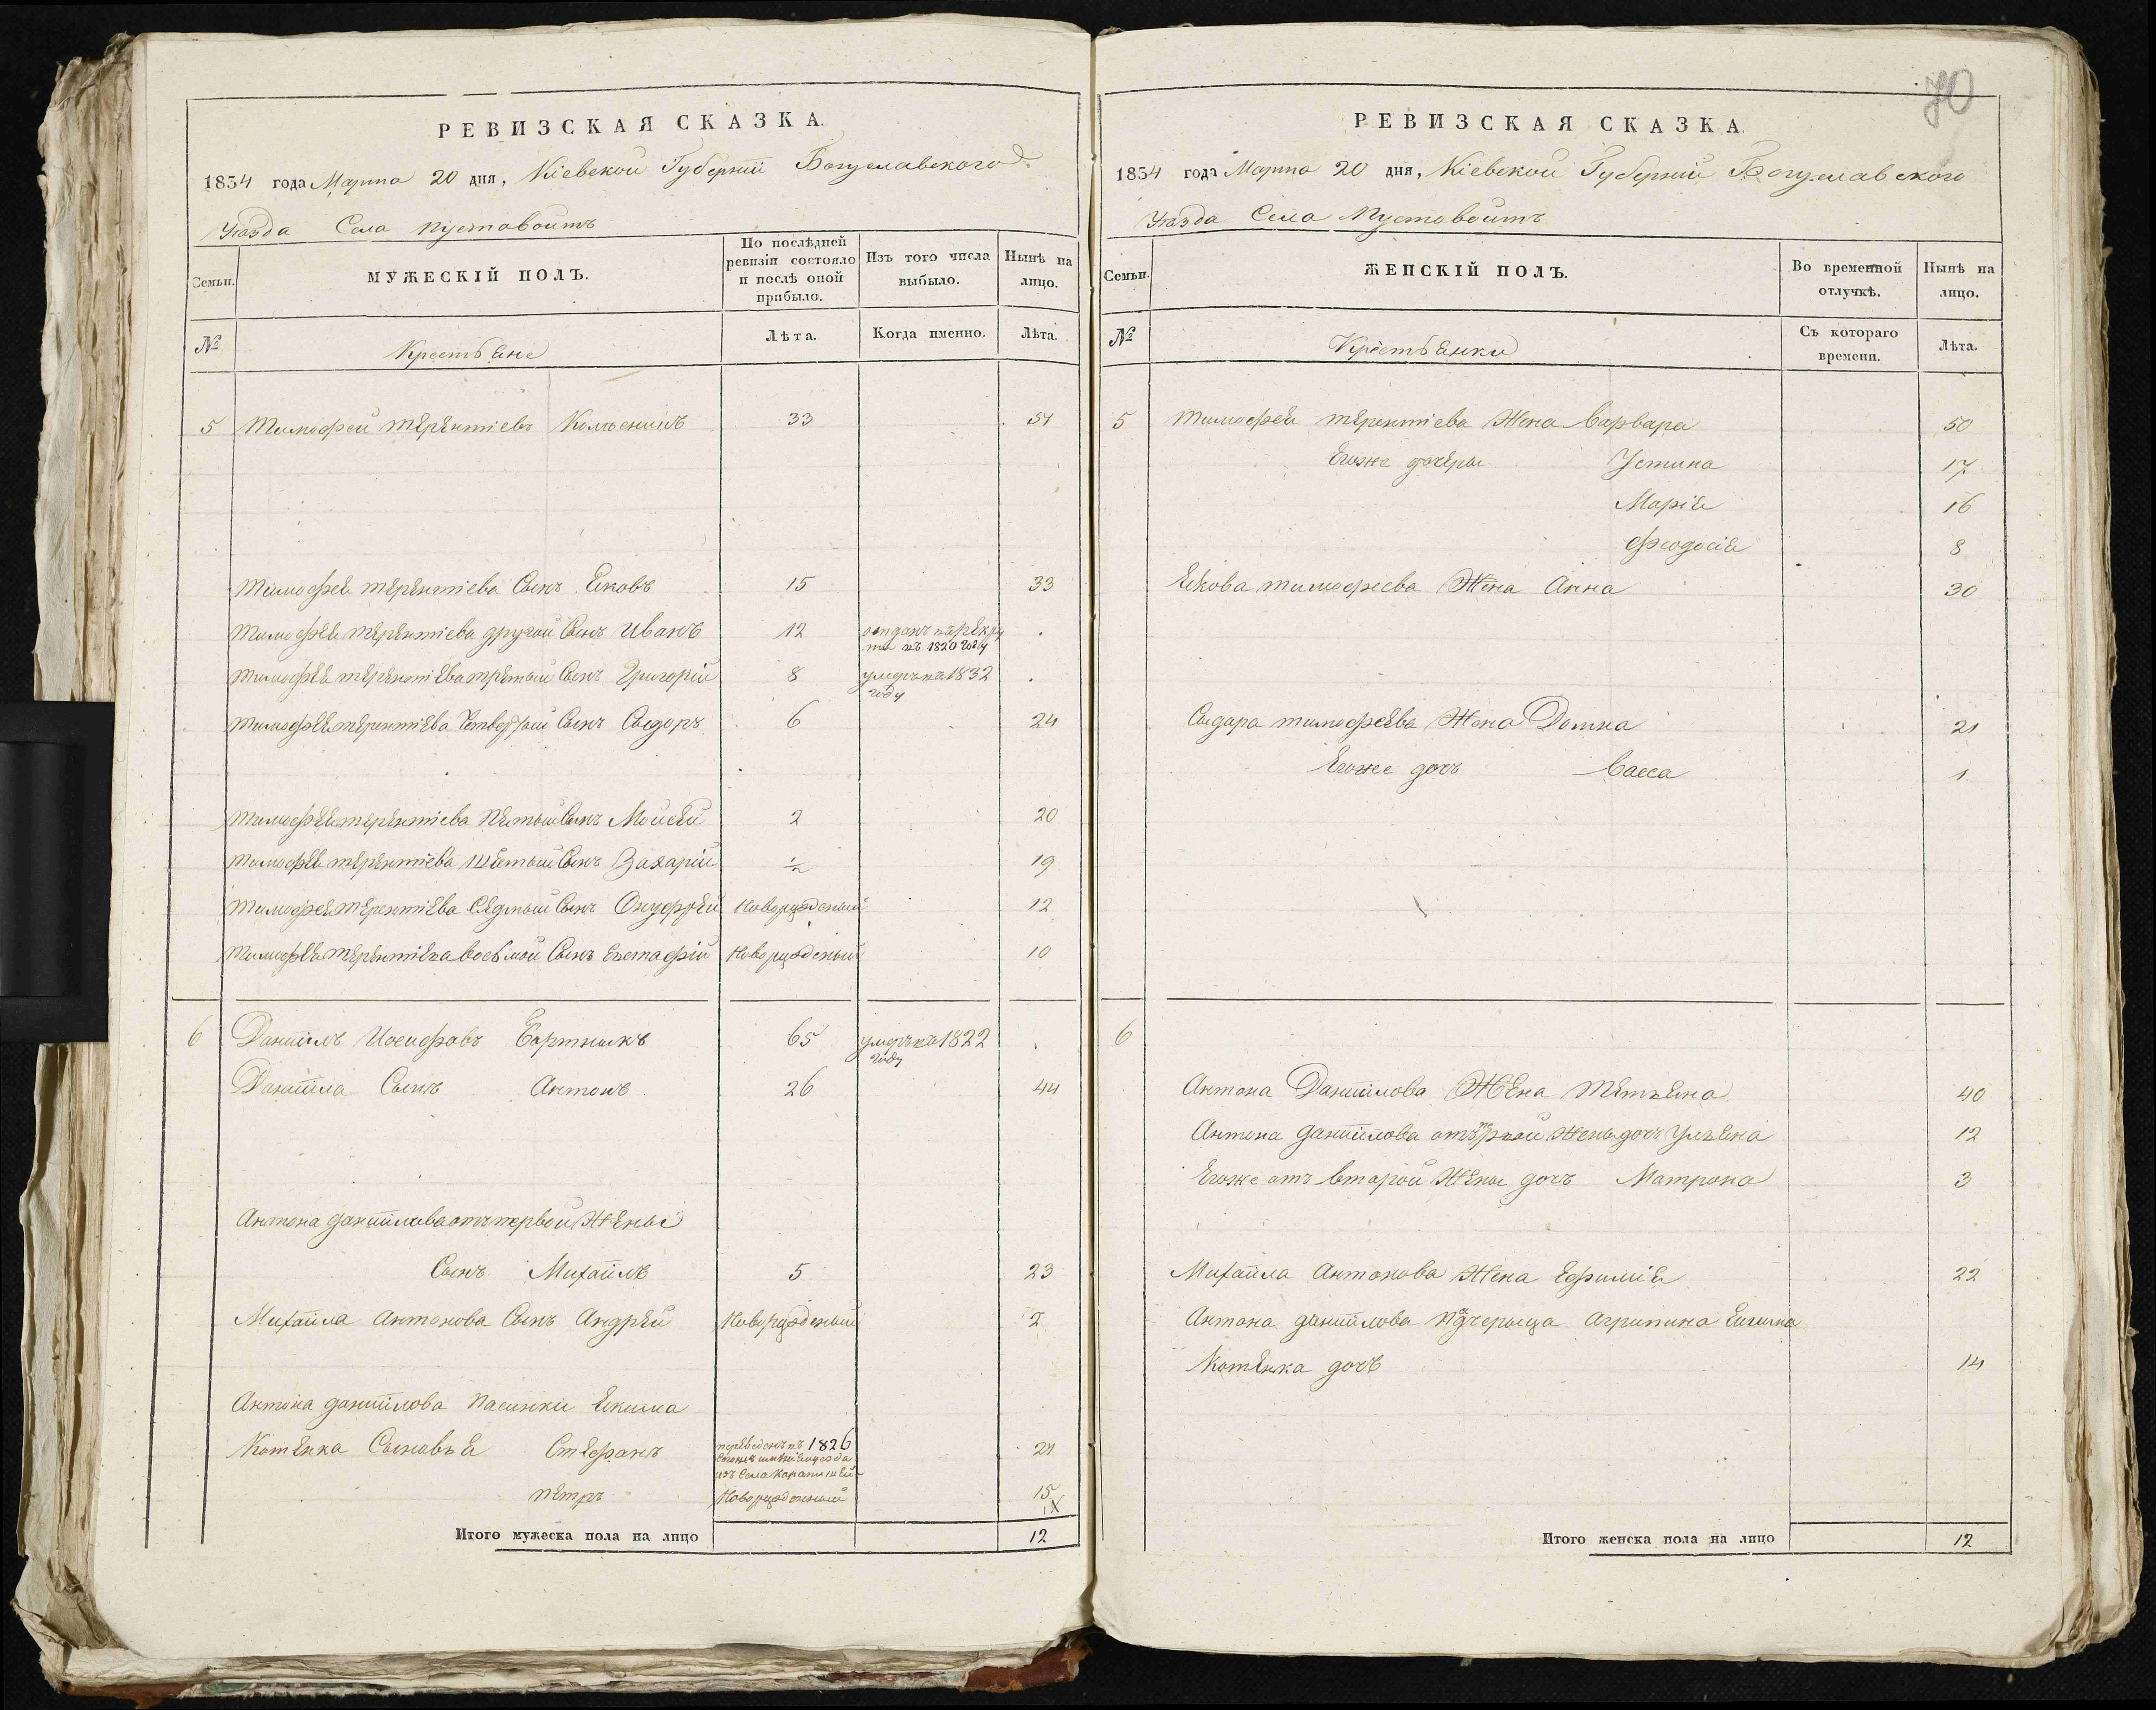 РЕВИЗСКАЯ СКАЗКА.
1834 года Марта 20 дня, Кіевской Губерніи Богуславского
Уѣзда Села Пустовойтъ
Семьи.
МУЖЕСКІЙ ПОЛЪ.
По послѣдней ревизіи состояло и послѣ оной прибыло.
Изъ того числа выбыло.
Нынѣ на лицо.
№
Крестьяне
Лѣта.
Когда именно.
Лѣта.
5 Тимофей терентіевъ 33 51
Тимофея терентіева Сынъ Яковъ 15 33
Тимофея терентіева другой Сынъ Иванъ 12 отданъ въ рекру
ты въ 1820 году
Тимофея терентіева третый Сынъ Григорій 8 умеръ въ 1832
году
Тимофея терентіева Четвертый Сынъ Сыдоръ 6 24
Тимофея терентіева пятый Сынъ Мойсей 2 20
Тимофея терентіева шестый Сынъ Захарій ½ 19
Тимофея терентіева Седмый Сынъ Онуфрей Новорожденый 12
Тимофея терентіева восьмой Сынъ Евстафій Новорожденый 10
6 Даніилъ Иосифовъ Бортникъ 65 умеръ въ 1822
году
Даніила Сынъ Антонъ 26 44
Антона даніилова отъ первой Жены
Сынъ Михаилъ 5 23
Михаила Антонова Сынъ Андрей Новорожденый 2
Антона даніилова пасинки Якима
Котенка Сыновья Стефанъ переведенъ въ 1826 24
изъ Села Карапишей
Петръ Новорожденый 15
Итого мужеска пола на лицо 12
70
РЕВИЗСКАЯ СКАЗКА.
1834 года Марта 20 дня, Кіевской Губерніи Богуславского
Уѣзда Села Пустовойтъ
Семьи.
ЖЕНСКІЙ ПОЛЪ.
Во временной отлучкѣ.
Нынѣ на лицо.
№
Крестьянки
Съ котораго времени.
Лѣта.
5 Тимофея терентіева Жена Варвара 50
Егоже дочеры Устина 17
Марія 16
Феодосія 8
Якова тимофеева Жена Анна 30
Сыдара тимофеева Жена Домна 21
Егоже дочъ Васса 1
6
Антона Даніилова Жена Тетьяна 40
Антона даніилова отъ первой Жены дочъ Ульяна 12
Егоже отъ второй Жены дочъ Матрона 3
Михаила Антонова Жена Ефимія 22
Антона даніилова падчерыца Агрипина Якима
Котенка дочъ 14
Итого женска пола на лицо 12